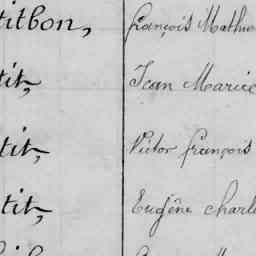 titbon, françois Mathu
tit, Jean Marie
tit, Victor françois
tit, Eugène charl